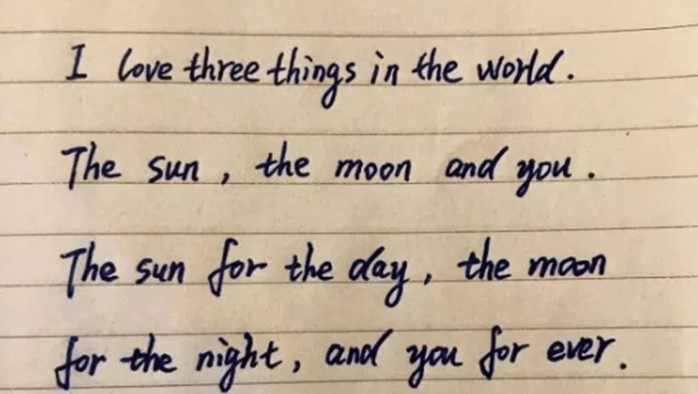 I love three things in the world.
The sun, the moon and you.
The sun for the day, the moon
for the night, and you for ever.